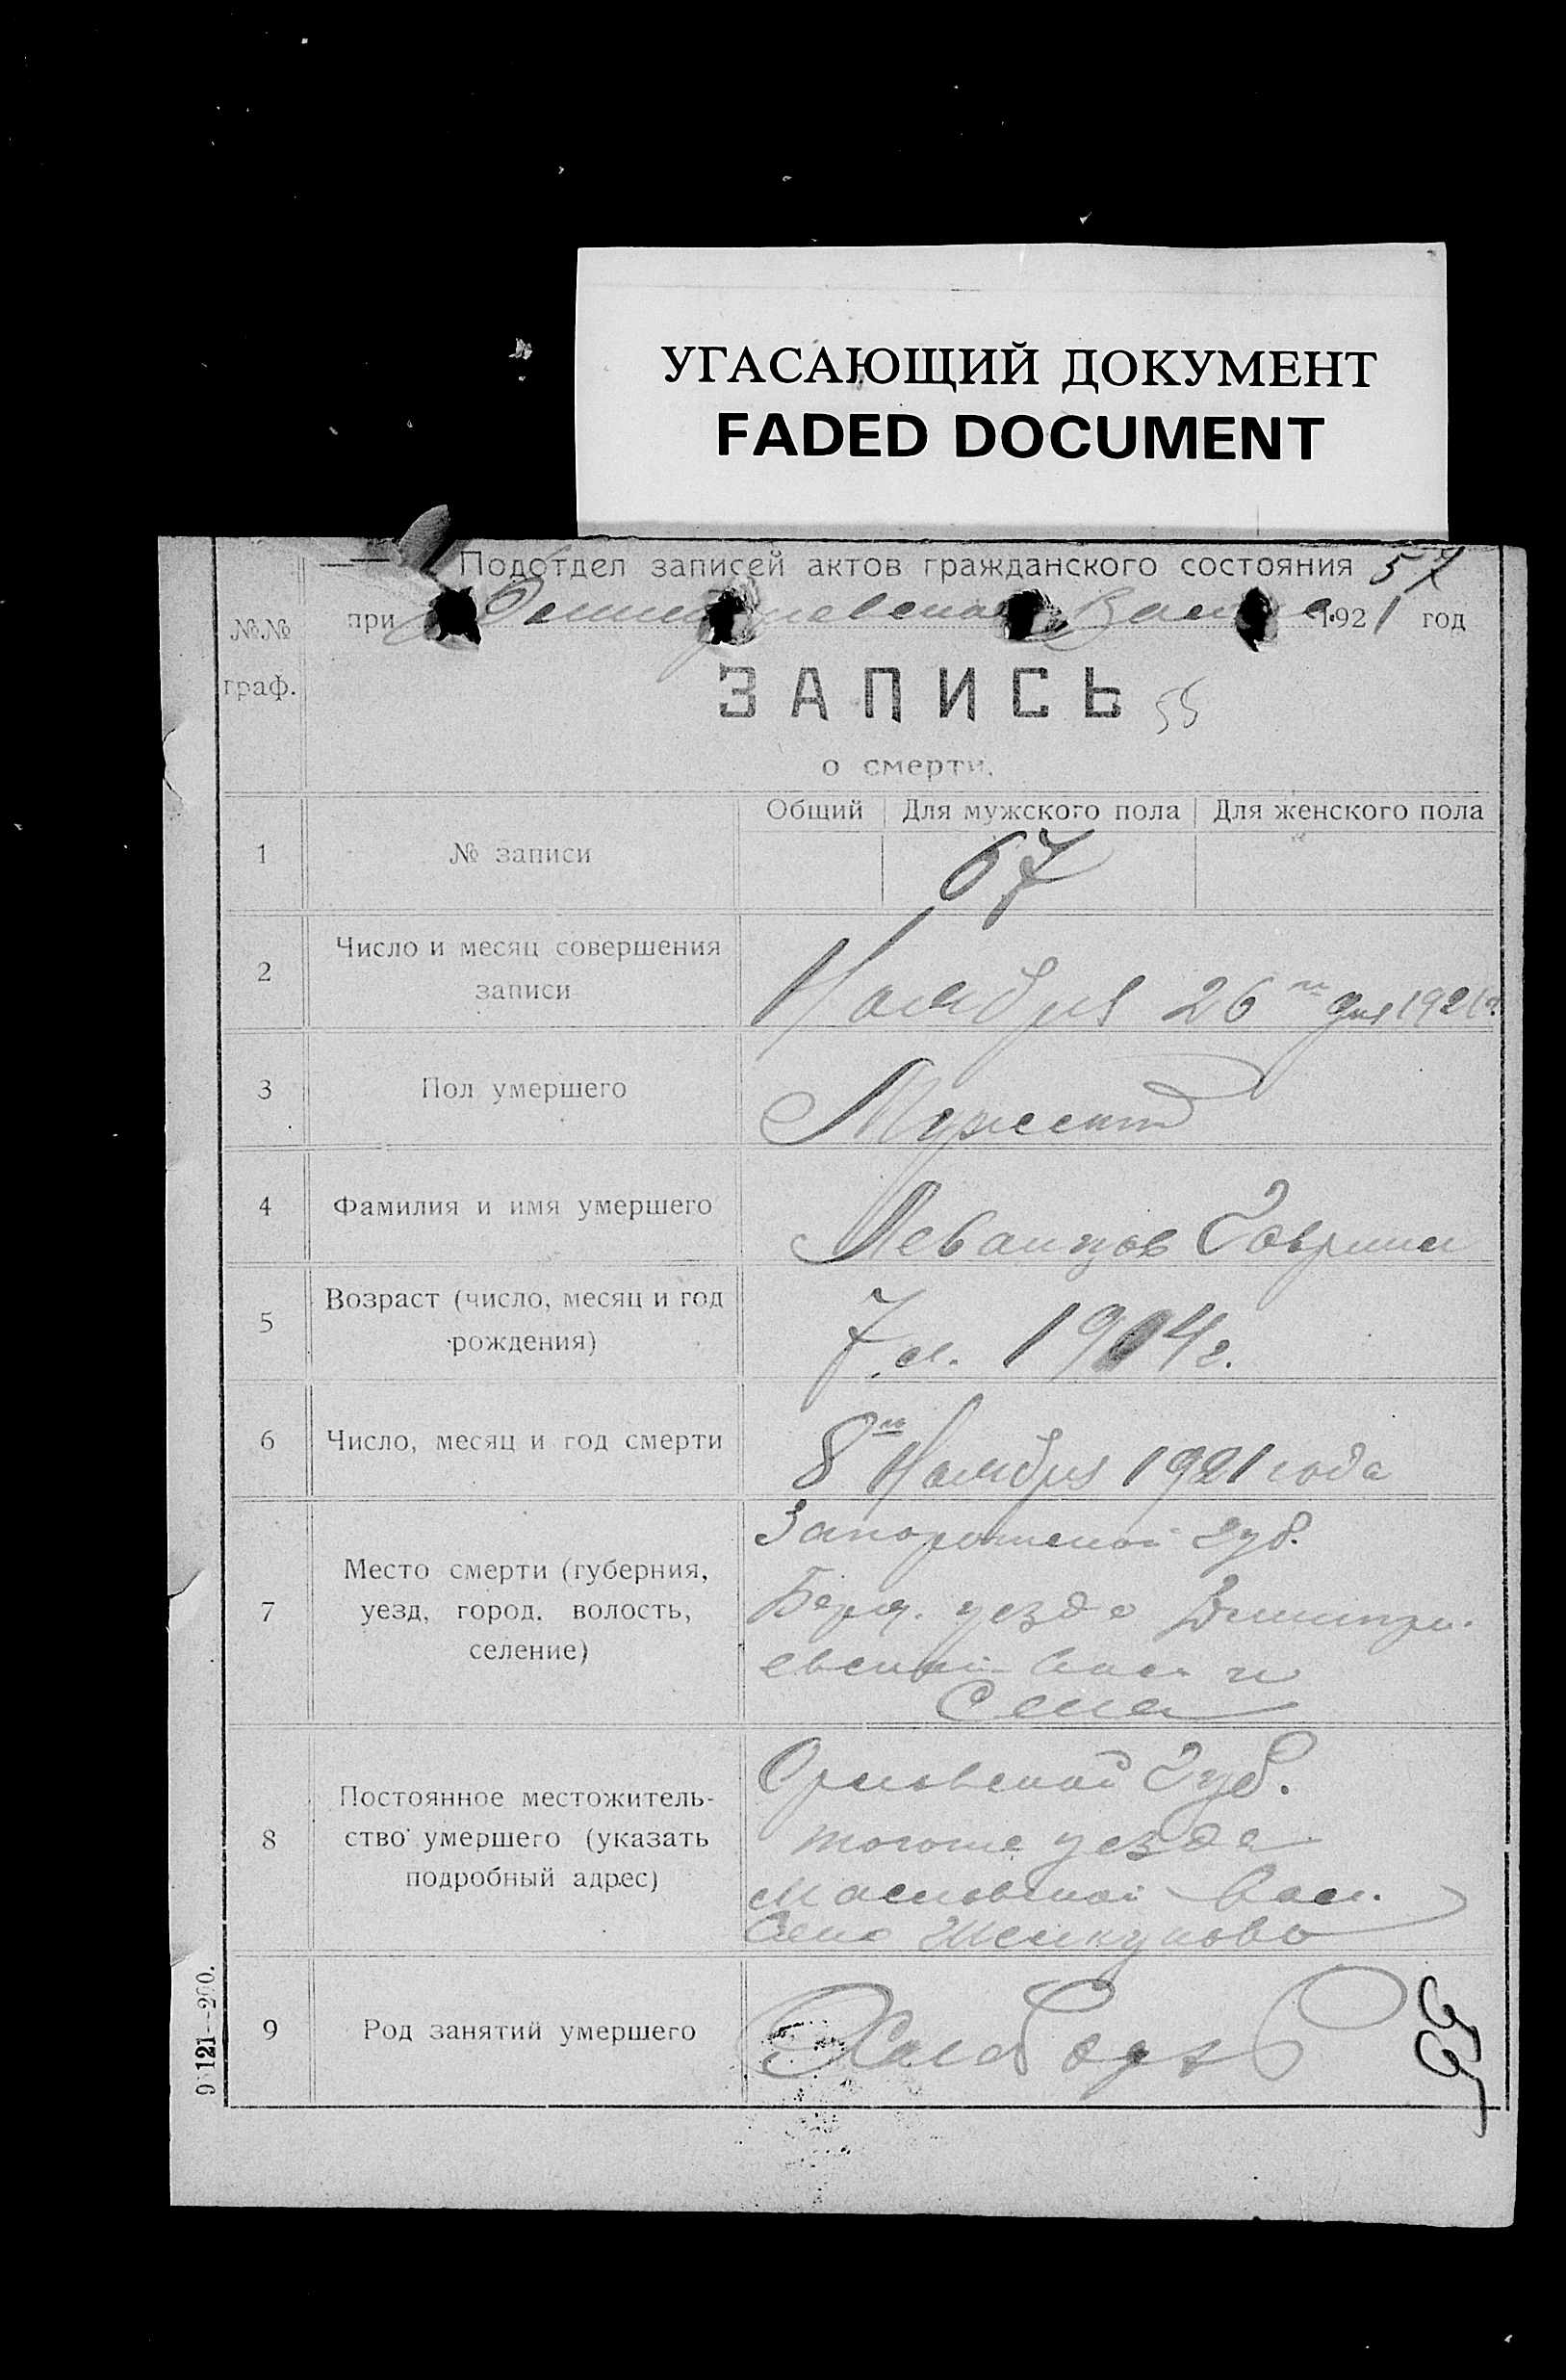 УГАСАЮЩИЙ ДОКУМЕНТ
FADED DOCUMENT
Подотдел записей актов гражданского состояния 57
при 1921 год
№№
граф.
ЗАПИСЬ 55
о смерти.
Общий Для мужского пола Для женского пола
1 № записи 67
2 Число и месяц совершения
записи
Ноября 26 го дня 1921 г.
3 Пол умершего
4 Фамилия и имя умершего Леванцов Гаврил
5 Возраст (число, месяц и год
рождения)
7 л. 1914 г.
6 Число, месяц и год смерти 8го Ноября 1921 года
7 Место смерти (губерния,
уезд, город, волость,
селение)
Запорожской губ.
Берд. уезда Дмитри-
евской вол. и
Села
8 Постоянное местожитель-
ство умершего (указать
подробный адрес)
Орловской Губ.
тогоже уезда
Масловской Вол.
Село
9 Род занятий умершего Хлебороб
65
9121—200.